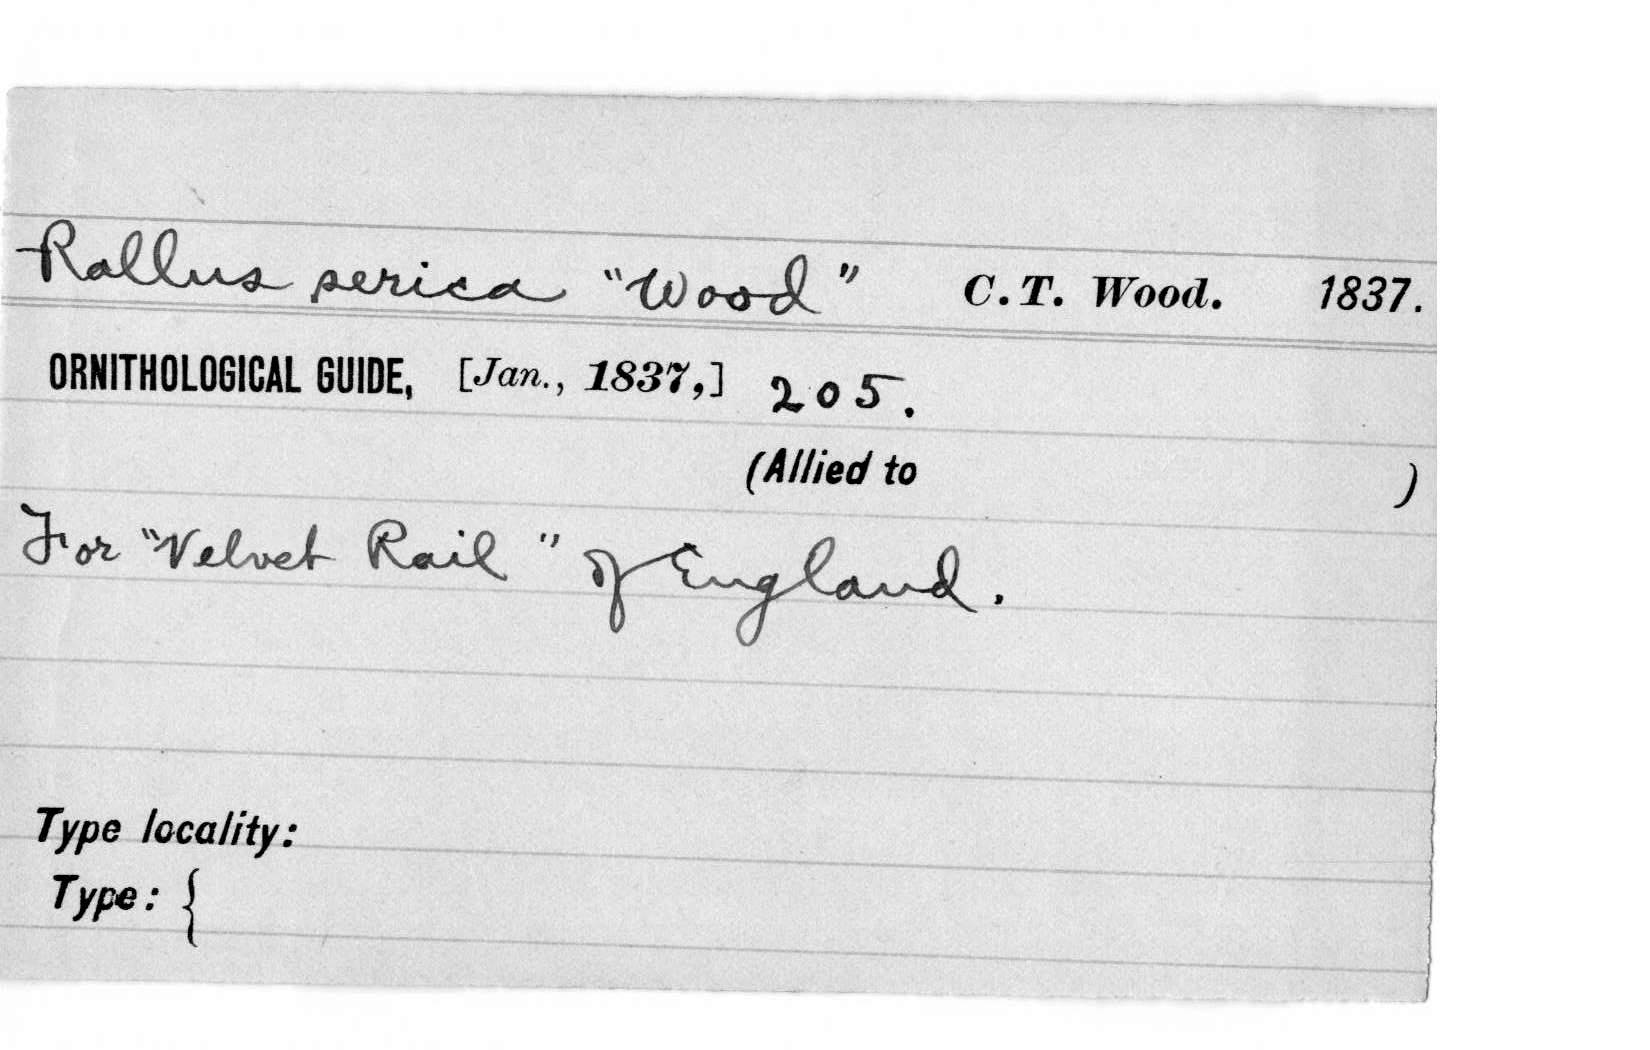 Rallus serica "Wood" C. T. Wood. 1837.
ORNITHOLOGICAL GUIDE, [Jan., 1837,] 205.
(Allied to )
For "Velvet Rail" of England.
Type locality:
Type: {